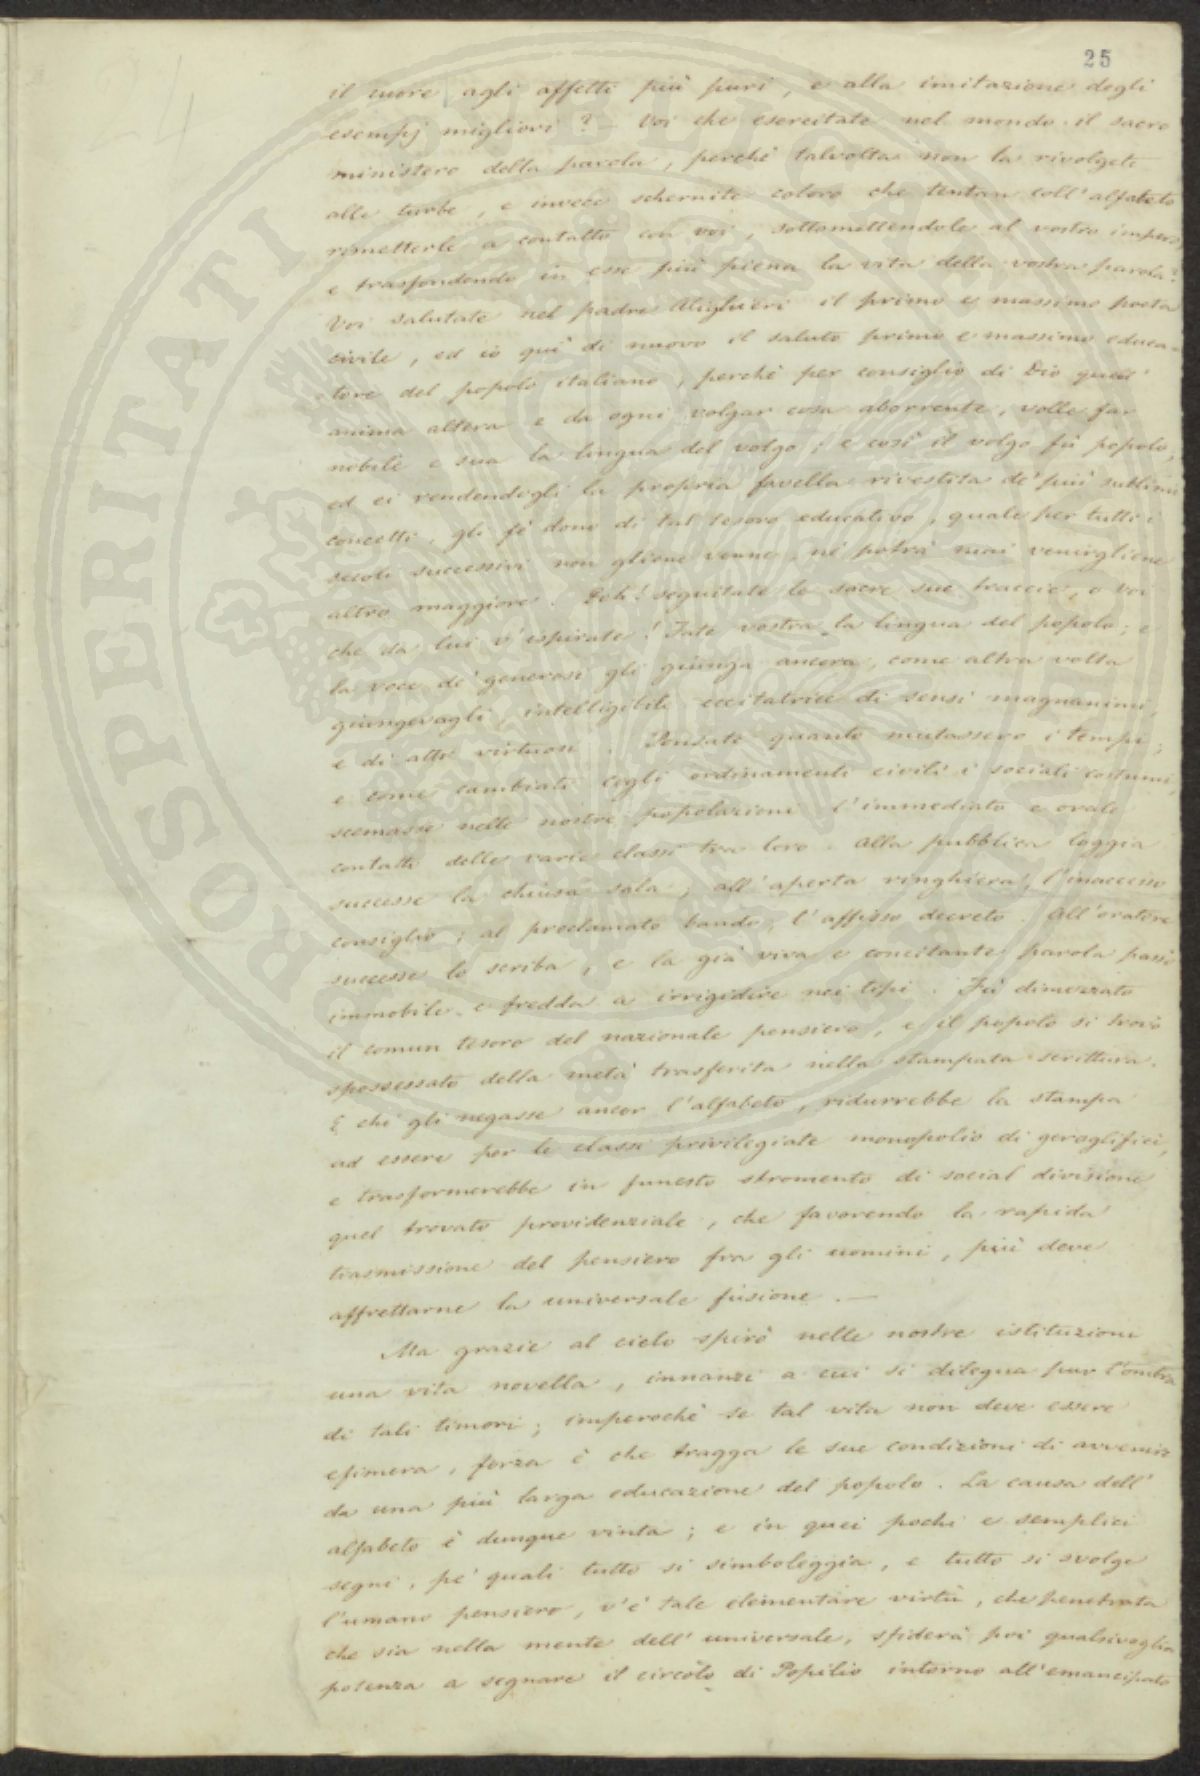 25
il cuore agli affetti più puri, e alla imitazione degli
esempj migliori? – Voi che esercitate nel mondo il sacro
ministero della parola, perchè talvolta non la rivolgete
alle turbe, e invece schernite coloro che tentan coll'alfabeto
rimetterle a contatto con voi, sottomettendole al vostro impero
e trasfondendo in esse più piena la vita della vostra parola?
Voi salutate nel padre Alighieri il primo e massimo poeta
civile, ed io quì di nuovo il saluto primo e massimo educa-
tore del popolo italiano, perchè per consiglio di Dio quell'
anima altera e da ogni volgar cosa aborrente, volle far
nobile e sua la lingua del volgo; e così il volgo fù popolo,
ed ei rendendogli la propria favella rivestita de' più sublimi
concetti, gli fè dono di tal tesoro educativo, quale per tutti i
secoli successivi non gliene venne, nè potrà mai venirgliene
altro maggiore. Deh! seguitate le sacre sue traccie, o voi
che da lui v'espirate! Fate vostra la lingua del popolo; e
la voce de' generosi gli giunga ancora, come altra volta
giungevagli, intelligibile eccitatrice di sensi magnanimi,
e di atti virtuosi. Pensate quanto mutassero i tempi;
e come cambiati cogli ordinamenti civili i sociali costumi,
scemasse nelle nostre popolazioni l'immediato e orale
contatto delle varie classi tra loro. Alla pubblica loggia
successe la chiusa sala; all'aperta ringhiera, l'inaccesso
consiglio; al proclamato bando, l'affisso decreto. All'oratore
successe lo scriba, e la già viva e concitante parola passò
immobile e fredda a irrigidire nei tipi. Fù dimezzato
il comun tesoro del nazionale pensiero, e il popolo si trovò
spossessato della metà trasferita nella stampata scrittura.
E chi gli negasse ancor l'alfabeto, ridurrebbe la stampa
ad essere per le classi privilegiate monopolio di geroglifici,
e trasformerebbe in funesto stromento di social divisione
quel trovato providenziale, che favorendo la rapida
trasmissione del pensiero fra gli uomini, più deve
affrettarne la universale fusione. —
Ma grazie al cielo spirò nelle nostre istituzioni
una vita novella, innanzi a cui si dilegua pur l'ombra
di tali timori; imperochè se tal vita non deve essere
efimera, forza è che tragga le sue condizioni di avvenire
da una più larga educazione del popolo. La causa dell'
alfabeto è dunque vinta; e in quei pochi e semplici
segni, pe' quali tutto si simboleggia, e tutto si svolge
l'umano pensiero, v'è tale elementare virtù, che penetrata
che sia nella mente dell'universale, sfiderà poi qualsivoglia
potenza a segnare il circolo di Popilio intorno all'emancipato
PROSPERITATI PUBLICAE